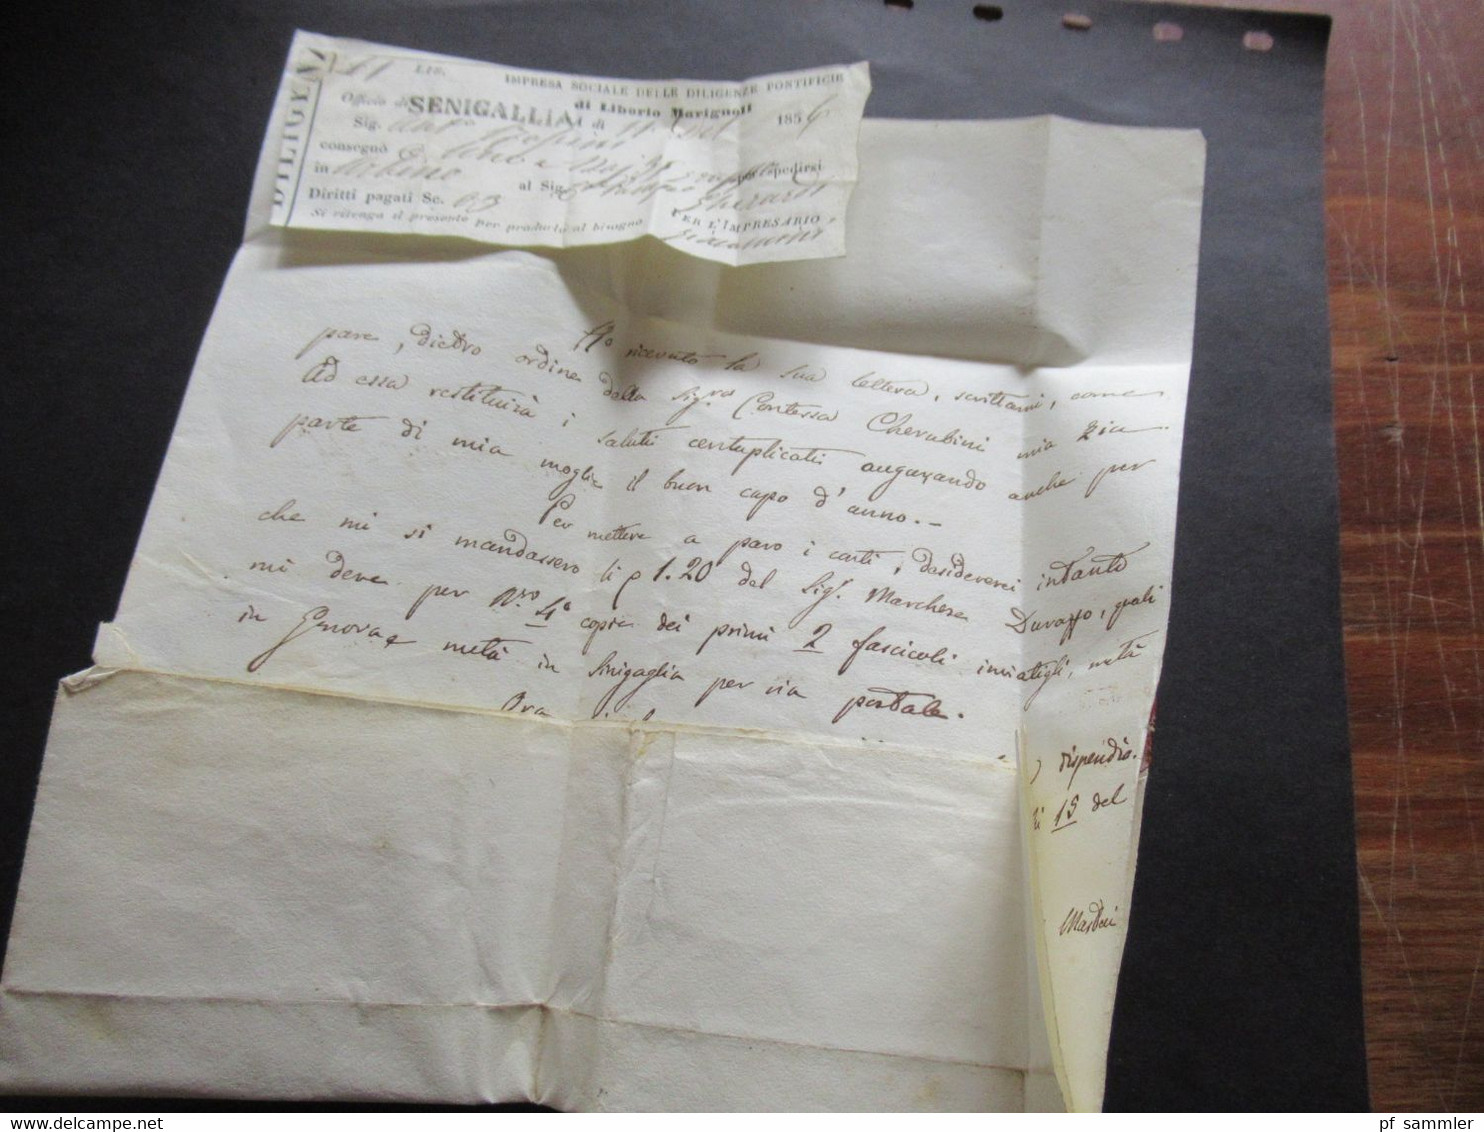 DILIGENZ
L. 16.
IMPRESA SOCIALE DELLE DILIGENZE PONTIFICIE
di Liborio Marignoli
Officio di SENIGALLIA di 1854
Sig.
consegnò spedirsi
in al Sig.
Diritti pagati Sc. 03 PER L'IMPRESARIO
Si ritenga il presente per produrlo al bisogno
Ho ricevuto la sua lettera, scrittami, come
pare, dietro ordine della Sigra Contessa Cherubini mia zia.
Ad essa restituirà i saluti centuplicati augurando anche per
parte di mia moglie il buon capo d'anno.-
Per mettere a paro i conti, desidererei intanto
che mi si mandassero li 1.20 del Sigr Marchese Durazzo, quali
mi deve per Nro 4 copie dei primi 2 fascicoli inviatigli, metà
in Genova e metà in Sinigaglia per via postale.
Ora
dispendio.
li 13 del